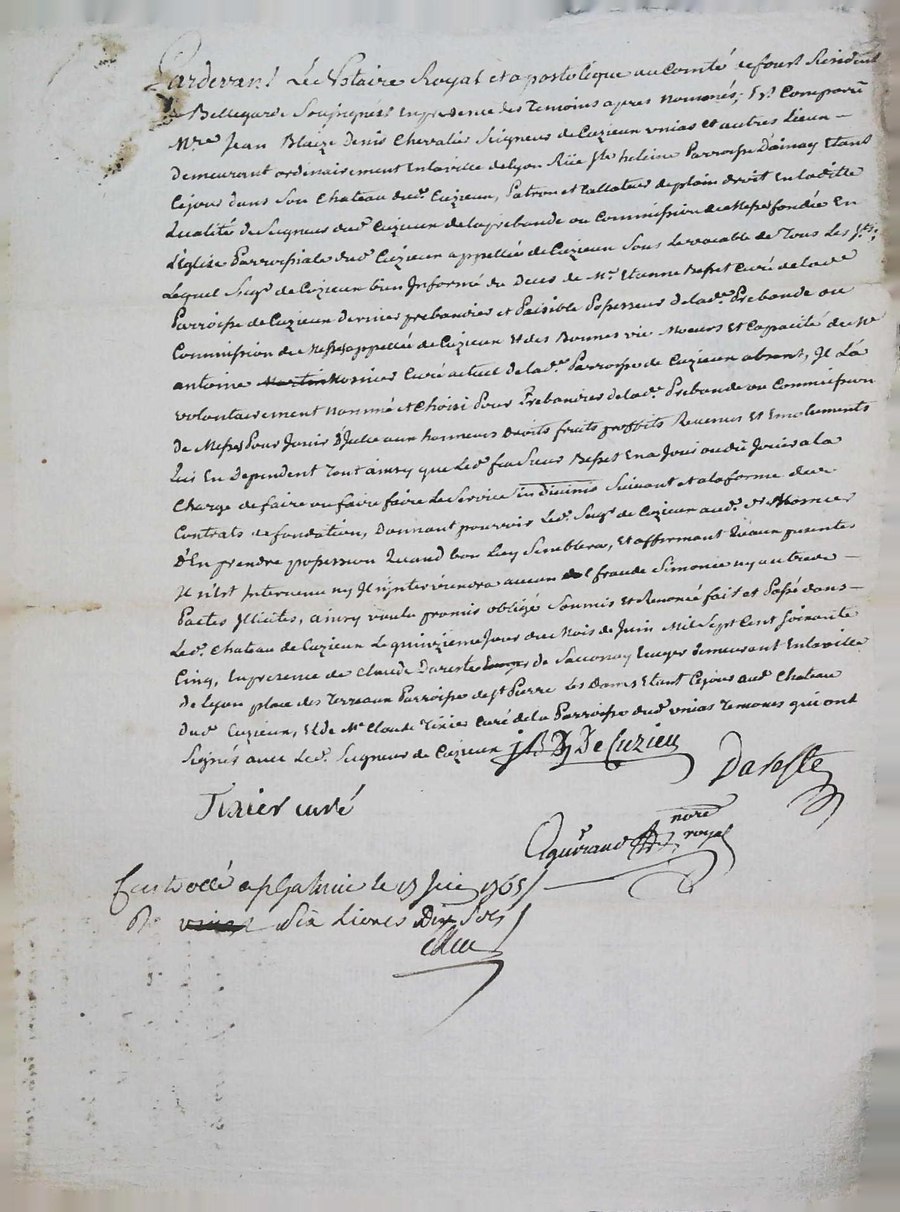 Pardevant Le Notaire Royal et apostolique au Comté de forest Résident
a Bellegarde Soussigné Enpresence des Temoins apres Nommés; Est Comparu
Mre Jean Blaize Denis Chevalier Seigneur de Cuzieux unias et autres Lieux -
Demeurant ordenairement Enlaville delyon Rüe Ste heleine Parroisse Dainay Etant
Cejour dans Son Chateau dud. Cuzieux, Patron et Callateur deplain droit Enladitte
Qualité de Seigneur dud. Cuzieux delaprebande ou Commission de Messes fondée En
L'Eglise Parroissiale dud. Cuzieux appellée de Cuzieux Sous Levocable de Tous Les Sts;
Lequel Seigr. de Cuzieux bien Informé du Deces de Mr. Etienne Besset Curé delade
Parroisse de Cuzieux dernier prebandier et Paisible Possesseur delade. Prebande ou
Commission de Messes appellée de Cuzieux Et des Bonnes vie Moeurs Et Capacité de Mre
antoine Mosnier Curé actuel delade. Parroisse de Cuzieux absent, Il La
volontairement nommé et Choisi Pour Prebandier delade. Prebande ou Commission
de Messes Pour Jouir D'Icelle aux honneurs Droits fruits proffits Revenus Et Emoluments
Qui En Dependent Tout ainsy que Led. feu Sieur Besset En a Joui ou dû Jouir ala
Charge de faire ou faire faire Le Service in divinis Suivant et ala forme des
Contrats de fondation, Donnant pouvoir Led. Seigr. de Cuzieux aud. Sr. Mosnier
D'En prendre possession Quand bon Luy Semblera, Et affirmant Qu'aux presentes
Il n'Est Intervenu ny Il n'Interviendra aucun fraude Simonie ny autres -
Pactes Illicites, ainsy voulu promis obligé Soumis Et Renoncé fait et Passé dans -
Led. Chateau de Cuzieux Le quinzieme Jour du Mois de Juin Mil Sept Cent Soixante
Cinq, Enpresence de Claude Dareste de Sacconay Ecuyer demeurant Enlaville
de Lyon place des Terreaux Parroisse de St. Pierre Les Dames Etant Cejour aud. Chateau
dud. Cuzieux, Et de Mre Claude Tixier Curé de la Parroisse dud. unias Temoins qui ont
Signés avec Led. Seigneur de Cuzieux j. B. D De Cuzieu
Dareste
Tixier curé
nore
royal
Controllé a St Galmier le 17 Juin 1765
R. Six Livres Dix Sols